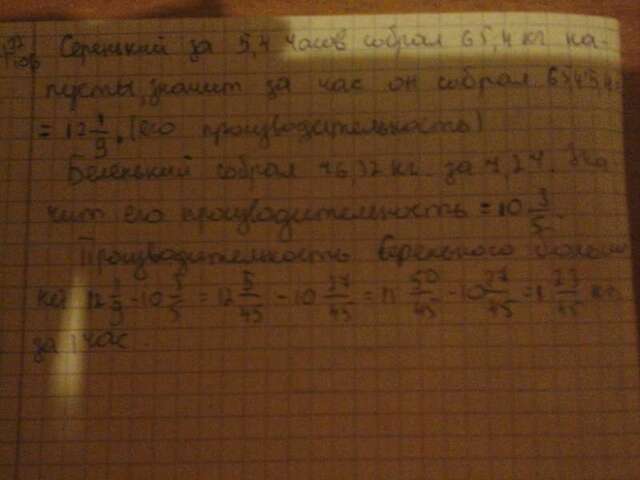 Серенький за 5,4 часов собрал 65,4 кг ка-
пусты, значит за час он собрал 65,4:5,4=
= 12 1/9. (его производительность)
Беленький собрал 76,32 кг. за 7,2 ч. Зна
чит его производительность = 10 3/5.
Производительность серенького больше
12 1/9 - 10 3/5 = 12 5/45 - 10 27/45 = 11 50/45 - 10 27/45 = 1 23/45 кг.
за 1 час.